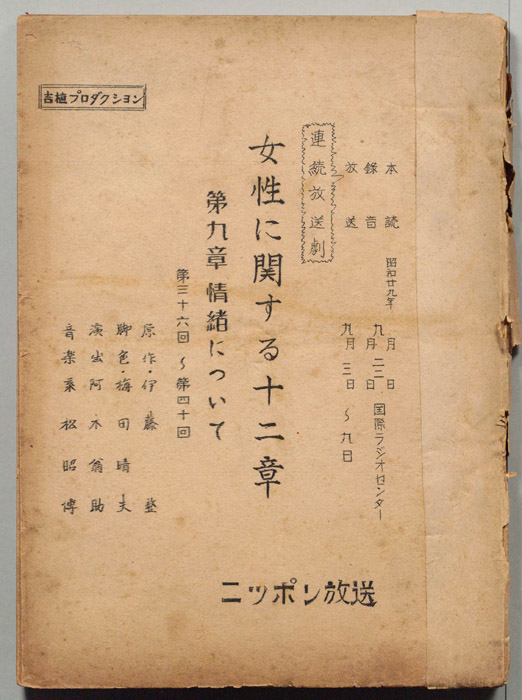 本読 昭和廿九年 月 日
録音 九月 日 国際ラジオセンター
放送 九月 三日～九日
連続放送劇
女性に関する十二章
第九章 情緒について
第三十六回～第四十回
原作・伊藤整
脚色・梅田晴夫
演出 阿木翁助
音楽 乗松昭博
吉植プロダクション
ニッポン放送